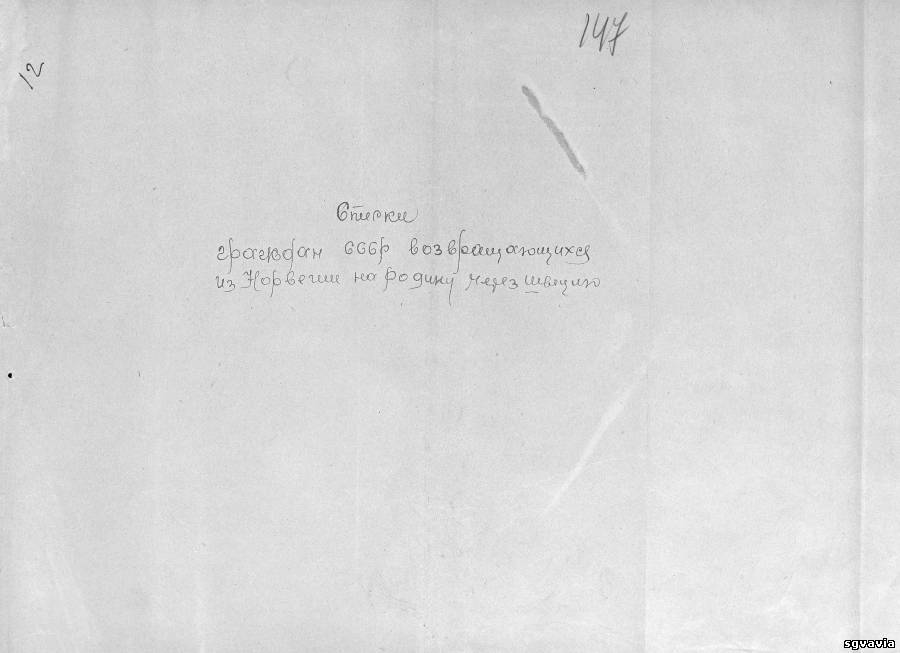 147
12
Списки
граждан СССР возвращающихся
из Норвегии на родину через швецию
sgvavia